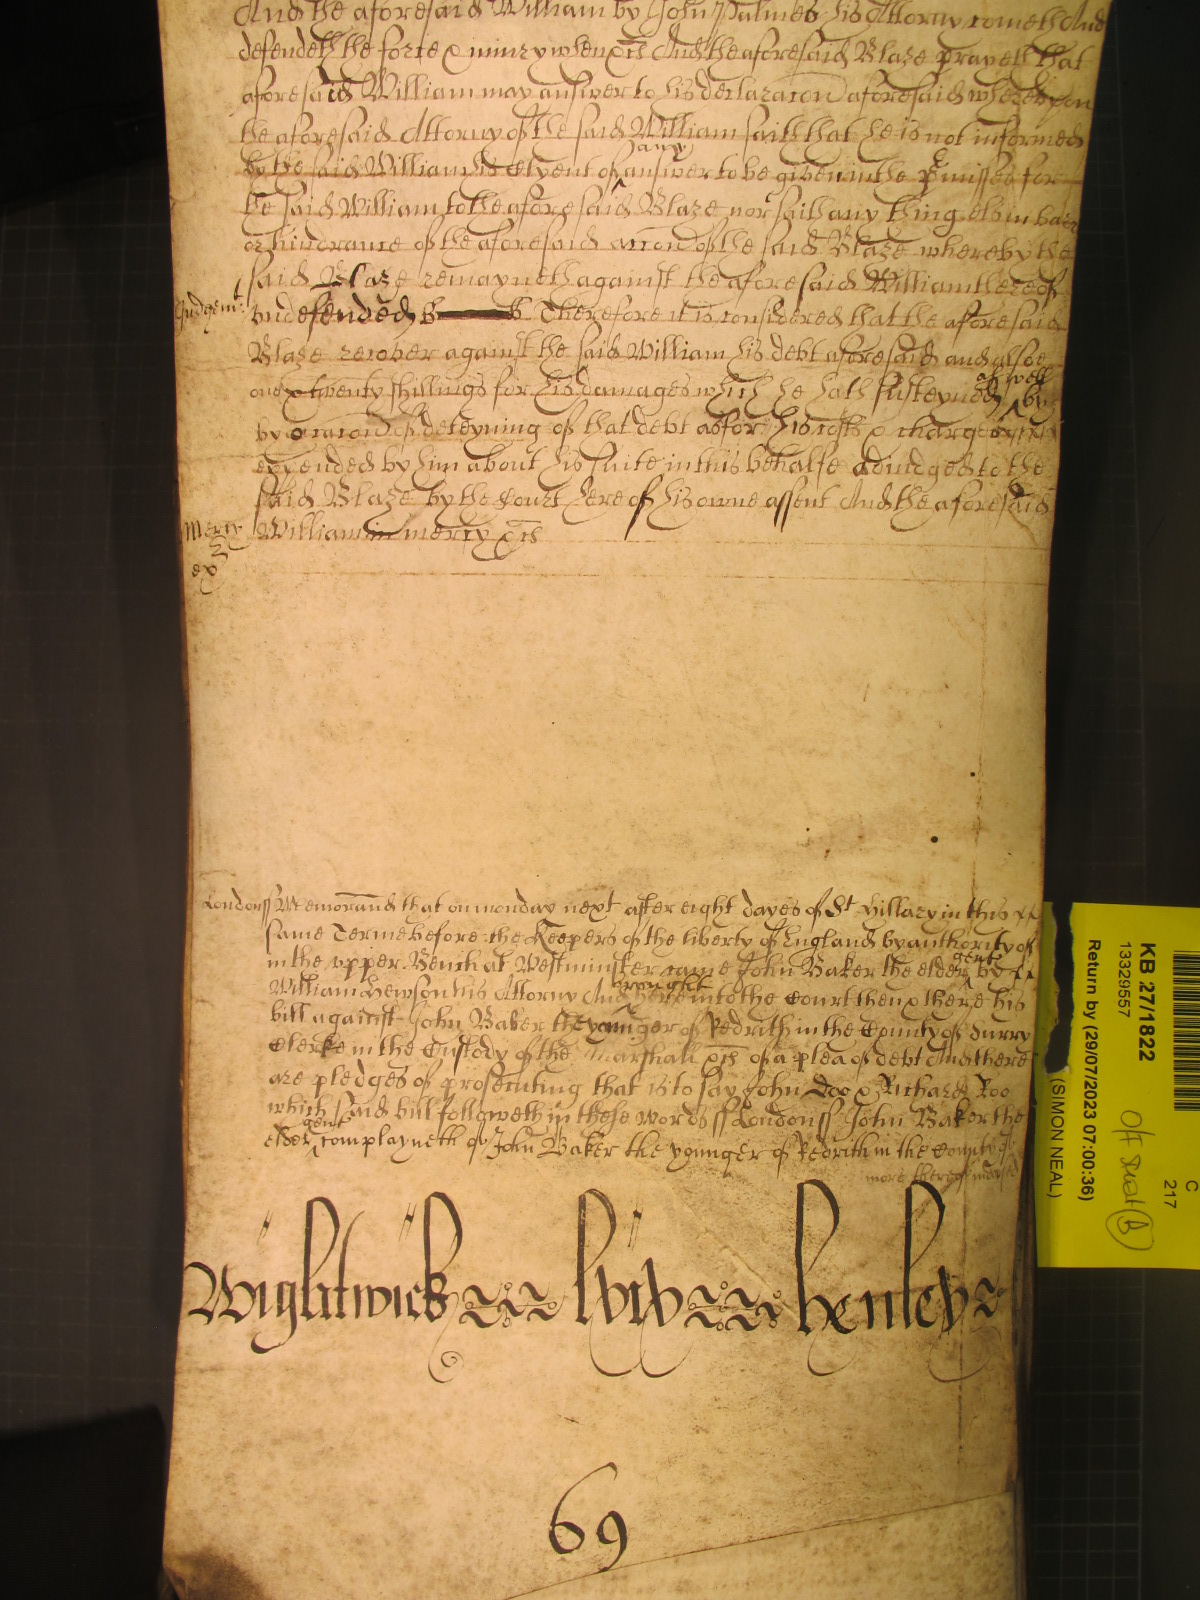 And the aforesaid William by John Palmes his Attorny cometh And
defendeth the force & iniury when &c And the aforesaid Blaze prayeth that
aforesaid William may answer to his declaracon aforesaid whereupon
the aforesaid Attorny of the said William saith that he is not informed
by the said William his Clyent of any answer to be given in the pmisses for
the said William to the aforesaid Blaze nor saith any thing els in barr
or hindrance of the aforesaid accon of the said Blaze whereby the
said Blaze remayneth against the aforesaid William thereof
Judgemt vndefended Therefore it is considered that the aforesaid
Blaze recover against the said William his debt aforesaid and alsoe
one & twenty shillings for his damages which he hath susteyned as well by
by occacon of deteyning of that debt as for his costs & charges
expended by him about his suite in this behalfe adiudged to the
said Blaze by the Court here of his owne assent And the aforesaid
Mercy William in mercy &c
ex
London ss Memorand that on monday next after eight dayes of St Hillary in this
same Terme before the Keepers of the liberty of England by authority of
in the vpper Bench at Westminster came John Baker the elder gent by
William Hewson his Attorny And brought here into the Court then & there his
bill against John Baker the younger of Redrith in the County of Surry
Clerke in the Custody of the Marshall &c of a plea of debt And there
are pledges of prosecuting that is to say John Doo & Richard Roo
which said bill followeth in these words ss London ss John Baker the
elder gent complayneth of John Baker the younger of Redrith in the County of
more thereof
Wightwick henley
69
KB 27/1822
13329557
Return by (29/07/2023 07:00:36)
(SIMON NEAL)
C
217
B